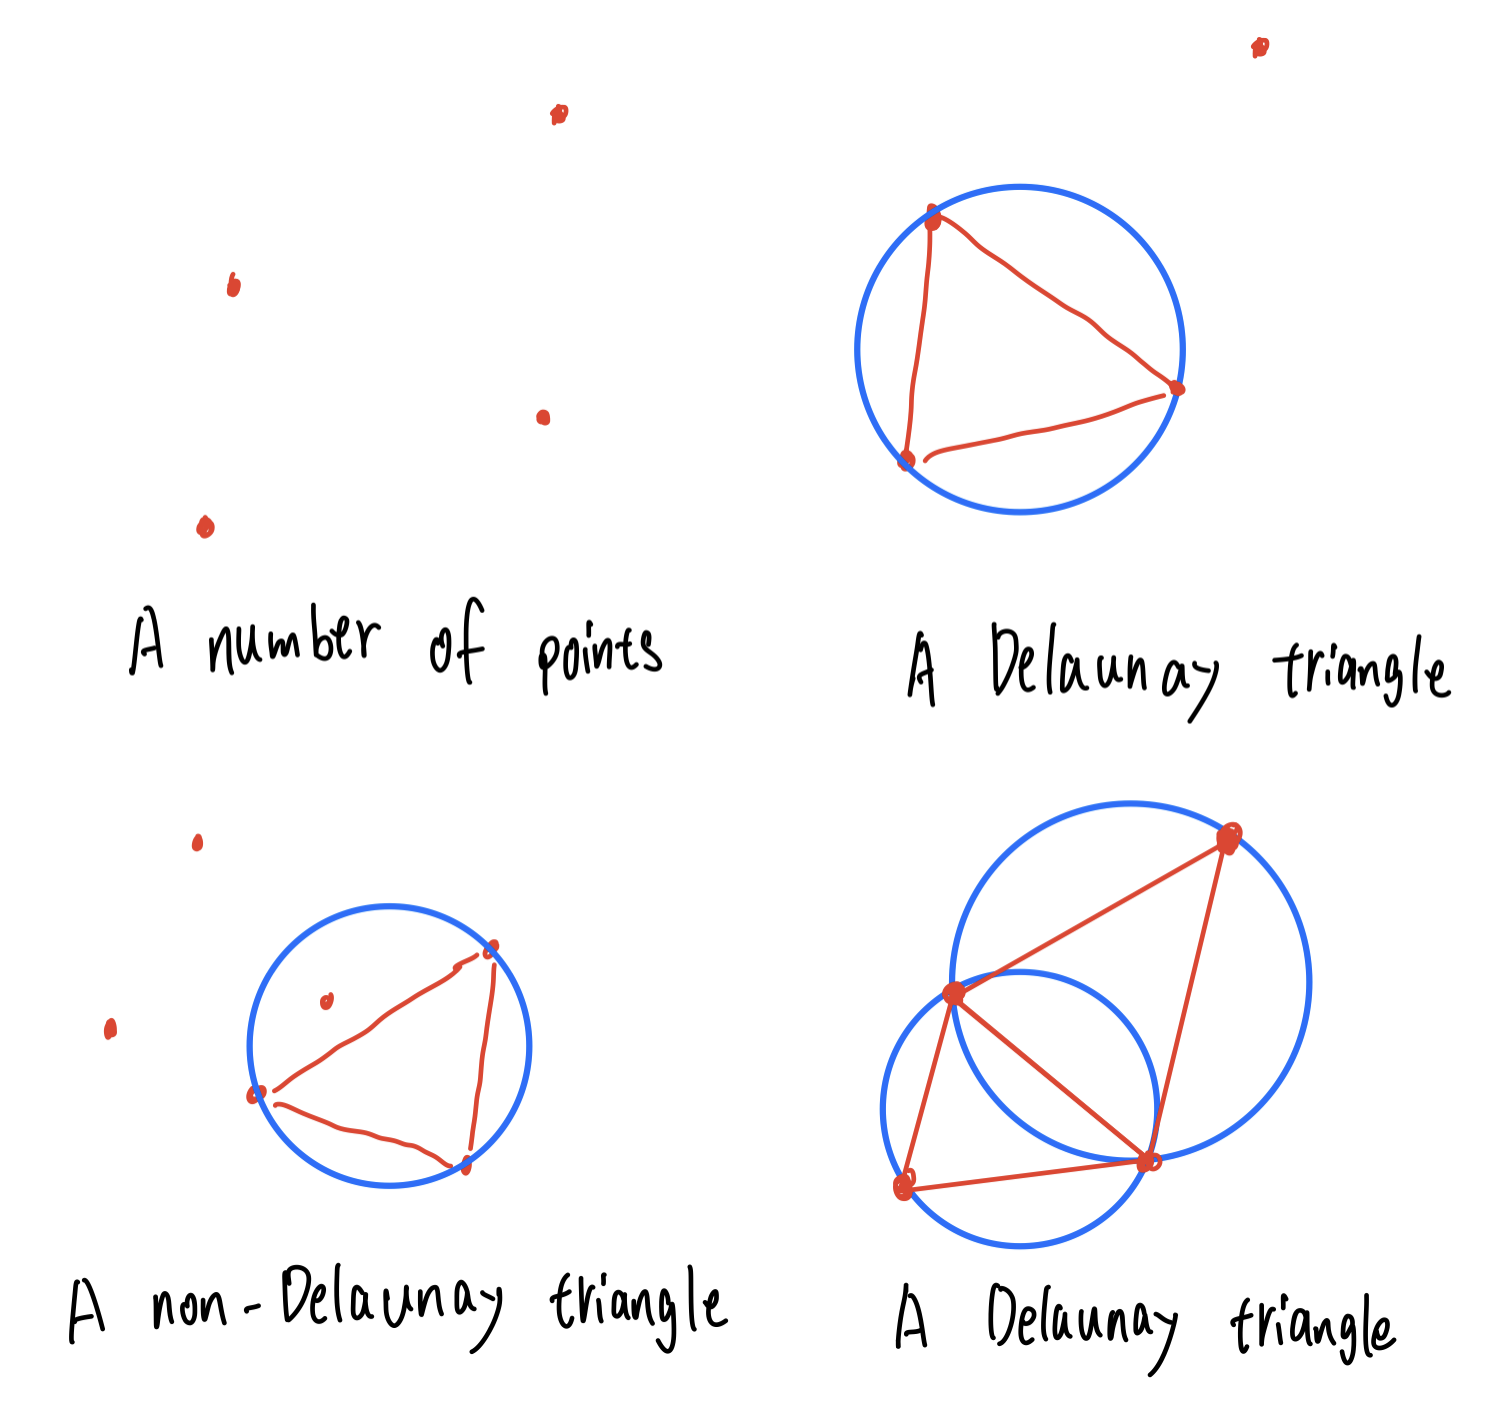 A number of points
A Delaunay triangle
A non-Delaunay triangle
A Delaunay triangle